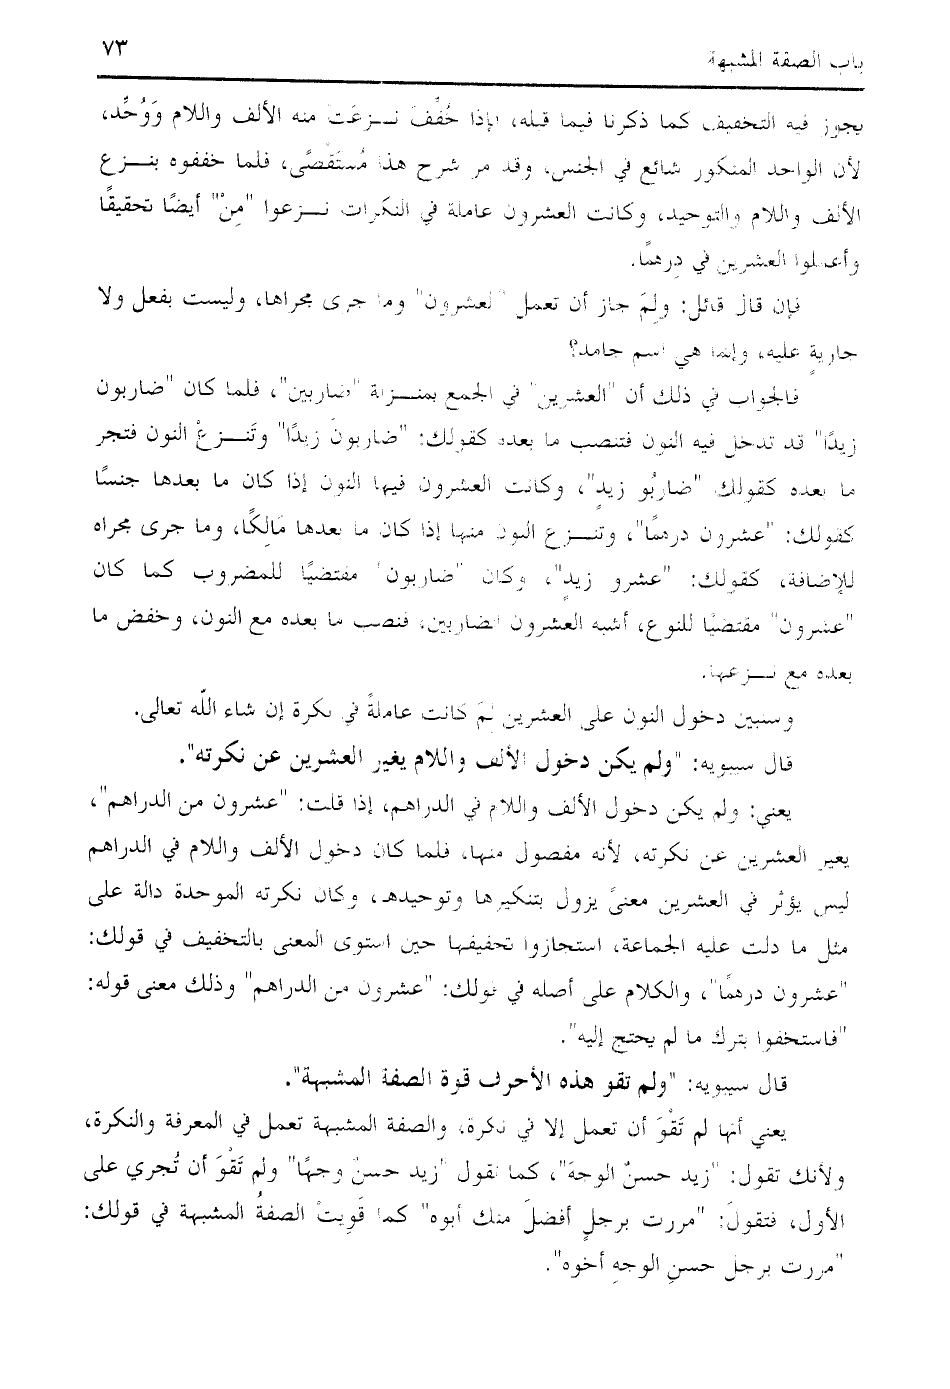 باب الصفة المشبهة ٧٣
يجوز فيه التخفيف كما ذكرنا فيما قبله، فإذا خُفِّفَ نـزعَت منه الألف واللام وَوُحِّد،
لأن الواحد المنكور شائع في الجنس، وقد مر شرح هذا مُستَقصًى، فلما خففوه بنـزع
الألف واللام والتوحيد، وكانت العشرون عاملة في النكرات نـزعوا "مِنْ" أيضًا تحقيقًا
وأعملوا العشرين في دِرهمًا.
فإن قال قائل: ولِمَ جاز أن تعمل "العشرون" وما جرى مجراها، وليست بفعل ولا
جاريةٍ عليه، وإنما هي اسم جامد؟
فالجواب في ذلك أن "العشرين" في الجمع بمنـزلة "ضاربين"، فلما كان "ضاربون
زيدًا" قد تدخل فيه النون فتنصب ما بعده كقولك: "ضاربونَ زيدًا" وتَنـزعْ النون فتجر
ما بعده كقولك "ضاربُو زيدٍ"، وكانت العشرون فيها النون إذا كان ما بعدها جنسًا
كقولك: "عشرون درهمًا"، وتنـزع النون منها إذا كان ما بعدها مَالِكًا، وما جرى مجراه
للإضافة، كقولك: "عشرو زيدٍ"، وكان "ضاربون" مقتضيًا للمضروب كما كان
"عشرون" مقتضيًا للنوع، أشبه العشرون الضاربين، فنصب ما بعده مع النون، وخفض ما
بعده مع نـزعها.
وسنبين دخول النون على العشرين لِمَ كانت عاملةً في نكرة إن شاء الله تعالى.
قال سيبويه: "ولم يكن دخول الألف واللام يغير العشرين عن نكرته".
يعني: ولم يكن دخول الألف واللام في الدراهم، إذا قلت: "عشرون من الدراهم"،
يغير العشرين عن نكرته، لأنه مفصول منها، فلما كان دخول الألف واللام في الدراهم
ليس يؤثر في العشرين معنىً يزول بتنكيرها وتوحيدها، وكان نكرته الموحدة دالة على
مثل ما دلت عليه الجماعة، استجازوا تخفيفها حين استوى المعنى بالتخفيف في قولك:
"عشرون درهمًا"، والكلام على أصله في قولك: "عشرون من الدراهم" وذلك معنى قوله:
"فاستخفوا بترك ما لم يحتج إليه".
قال سيبويه: "ولم تقو هذه الأحرف قوة الصفة المشبهة".
يعني أنها لم تَقْوَ أن تعمل إلا في نكرة، والصفة المشبهة تعمل في المعرفة والنكرة،
ولأنك تقول: "زيد حسنٌ الوجهَ"، كما تقول "زيد حسنٌ وجهًا" ولم تَقْوَ أن تُجري على
الأول، فتقولَ: "مررت برجلٍ أفضلَ منك أبوه" كما قَوِيتْ الصفةُ المشبهة في قولك:
"مررت برجل حسنِ الوجهِ أخوه".